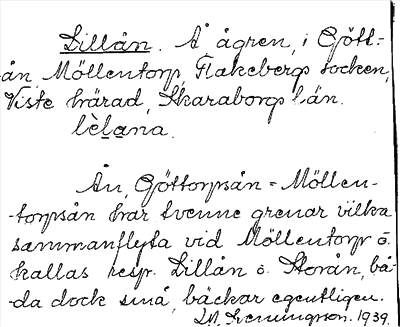 Lillån. Å ågren, i Gött-
ån Möllentorp, Flakebergs socken,
Viste härad, Skaraborgs län.
lèlana.
Ån, Göttorpsån = Möllen-
-torpsån har tvenne grenar vilka
sammanflyta vid Möllentorp o.
kallas resp. Lillån o. Storån, bå-
-da dock små bäckar egentligen.
1939.